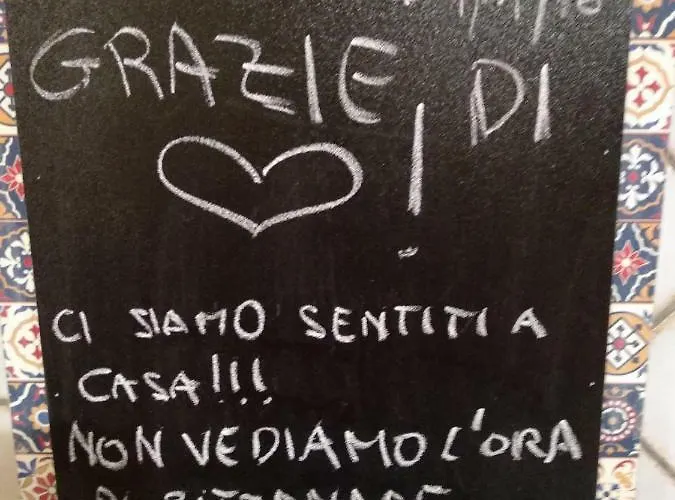 GRAZIE DI
!
CI SIAMO SENTITI A
CASA!!!
NON VEDIAMO L'ORA
DI RITORNARE